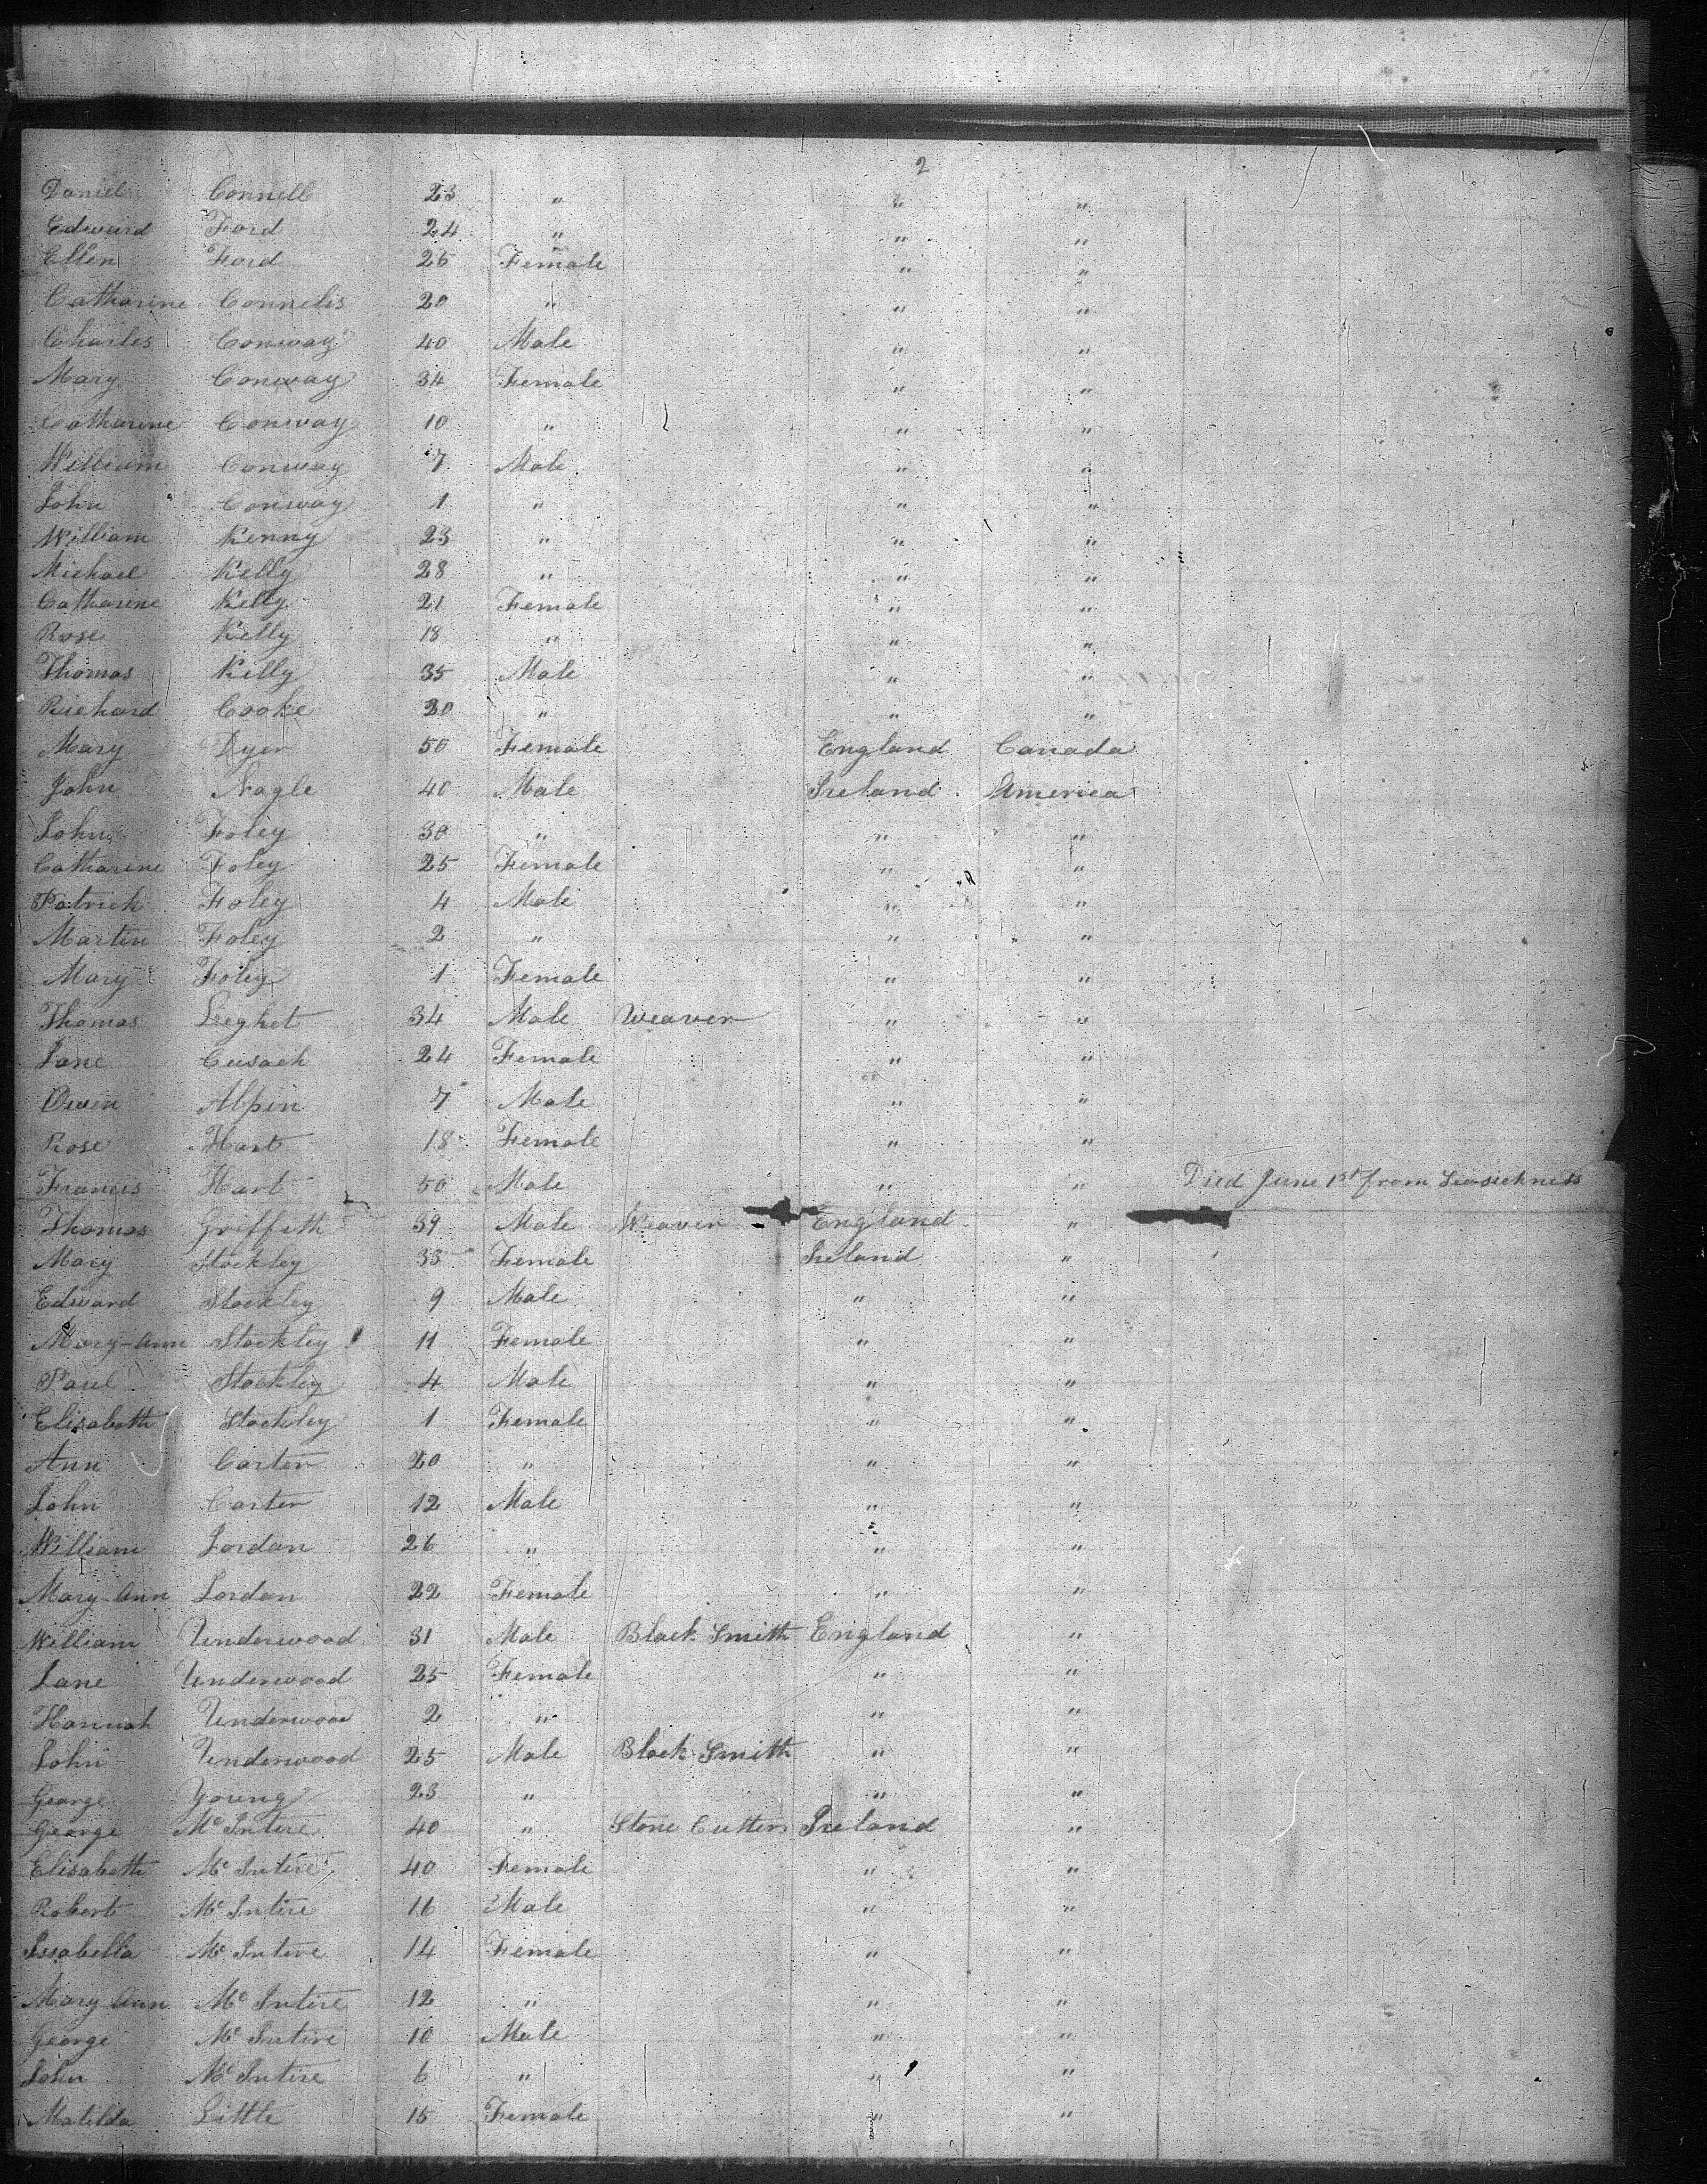 2
Daniel Connell 23 " " "
Edward Ford 24 " " "
Ellen Ford 25 Female " "
Catharine Connelis 20 " " "
Charles Conway 40 Male " "
Mary Conway 34 Female " "
Catharine Conway 10 " " "
William Conway 7 Male " "
John Conway 1 " " "
William Kenny 23 " " "
Michael Kelly 28 " " "
Catharine Kelly 21 Female " "
Rose Kelly 18 " " "
Thomas Kelly 35 Male " "
Richard Cooke 30 " " "
Mary Dyer 50 Female England Canada
John Nagle 40 Male Ireland America
John Foley 30 " " "
Catharine Foley 25 Female " "
Patrick Foley 4 Male " "
Martin Foley 2 " " "
Mary Foley 1 Female " "
Thomas Leghet 34 Male Weaver " "
Jane Cusack 24 Female " "
Owen Alpin 7 Male " "
Rose Hart 18 Female " "
Francis Hart 50 Male " " Died June 1st from Seasickness
Thomas Griffith 39 Male Weaver England "
Mary Stockley 33 Female Ireland "
Edward Stockley 9 Male " "
Mary-Ann Stockley 11 Female " "
Paul Stockley 4 Male " "
Elisabeth Stockley 1 Female " "
Ann Carter 20 " " "
John Carter 12 Male " "
William Jordan 26 " " "
Mary Ann Jordan 22 Female " "
William Underwood 31 Male Black Smith England "
Jane Underwood 25 Female " "
Hannah Underwood 2 " " "
John Underwood 25 Male Black Smith " "
George Young 23 " " "
George Mc Intire 40 " Stone Cutter Ireland "
Elisabeth Mc Intire 40 Female " "
Robert Mc Intire 16 Male " "
Issabella Mc Intire 14 Female " "
Mary Ann Mc Intire 12 " " "
George Mc Intire 10 Male " "
John Mc Intire 6 " " "
Matilda Little 15 Female " "